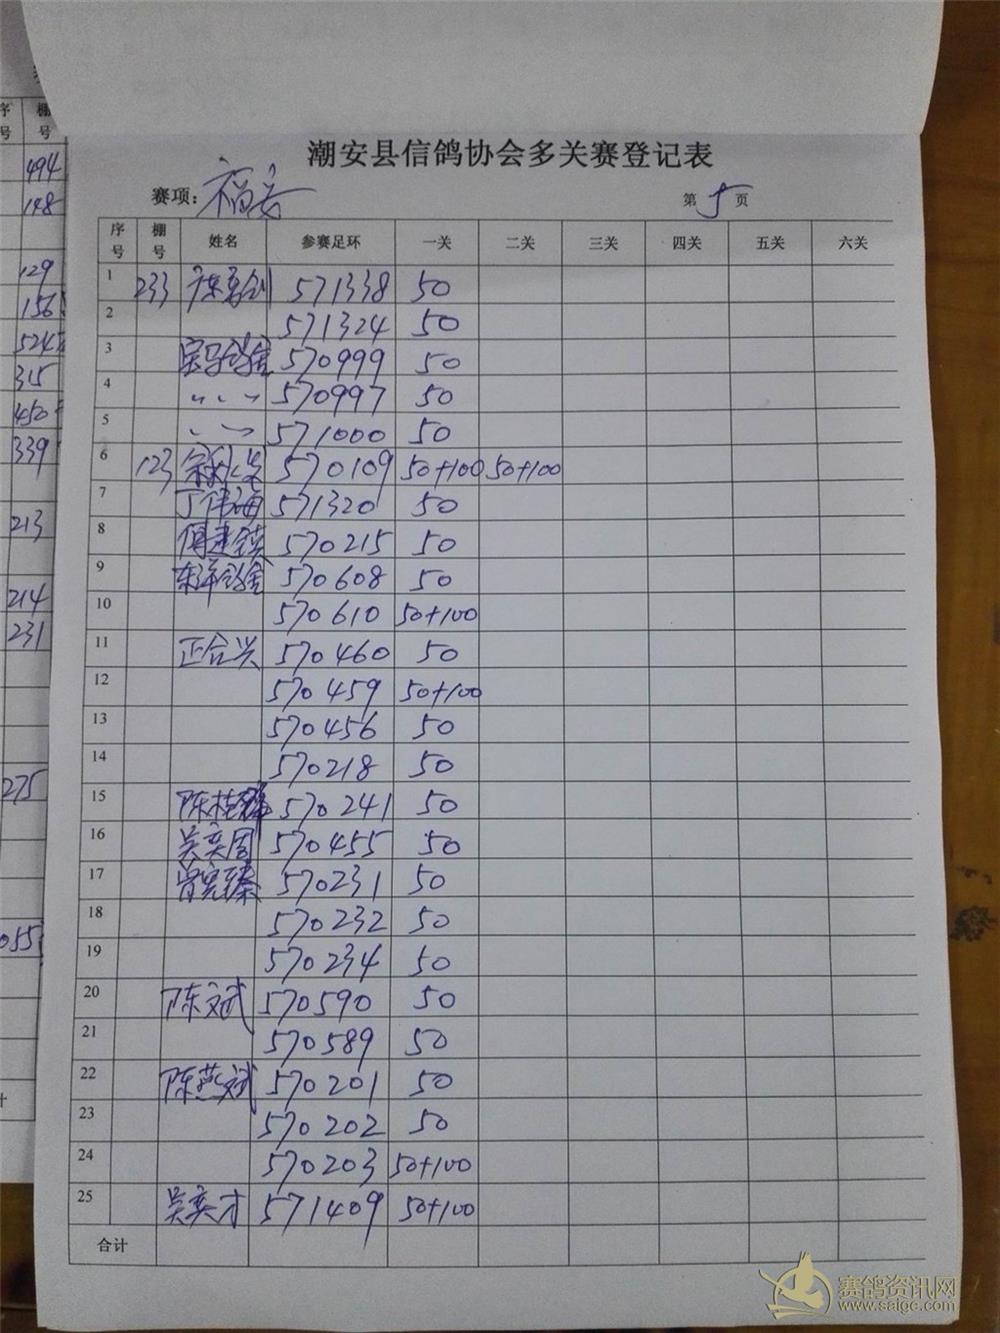 潮安县信鸽协会多关赛登记表
赛项: 福安 第 5 页
序号 棚号 姓名 参赛足环 一关 二关 三关 四关 五关 六关
1 233 571338 50
2 571324 50
3 宝马鸽舍 570999 50
4 〃 〃 〃 570997 50
5 〃 〃 571000 50
6 123 570109 50+100 50+100
7 丁伟海 571320 50
8 570215 50
9 东洋鸽舍 570608 50
10 570610 50+100
11 正合兴 570460 50
12 570459 50+100
13 570456 50
14 570218 50
15 570241 50
16 吴奕周 570455 50
17 570231 50
18 570232 50
19 570234 50
20 陈文斌 570590 50
21 570589 50
22 陈燕斌 570201 50
23 570202 50
24 570203 50+100
25 吴奕才 571409 50+100
合计
序号 棚号
494
148
129
156
524
315
450
339
213
214
231
275
055
赛鸽资讯网
www.saigc.com